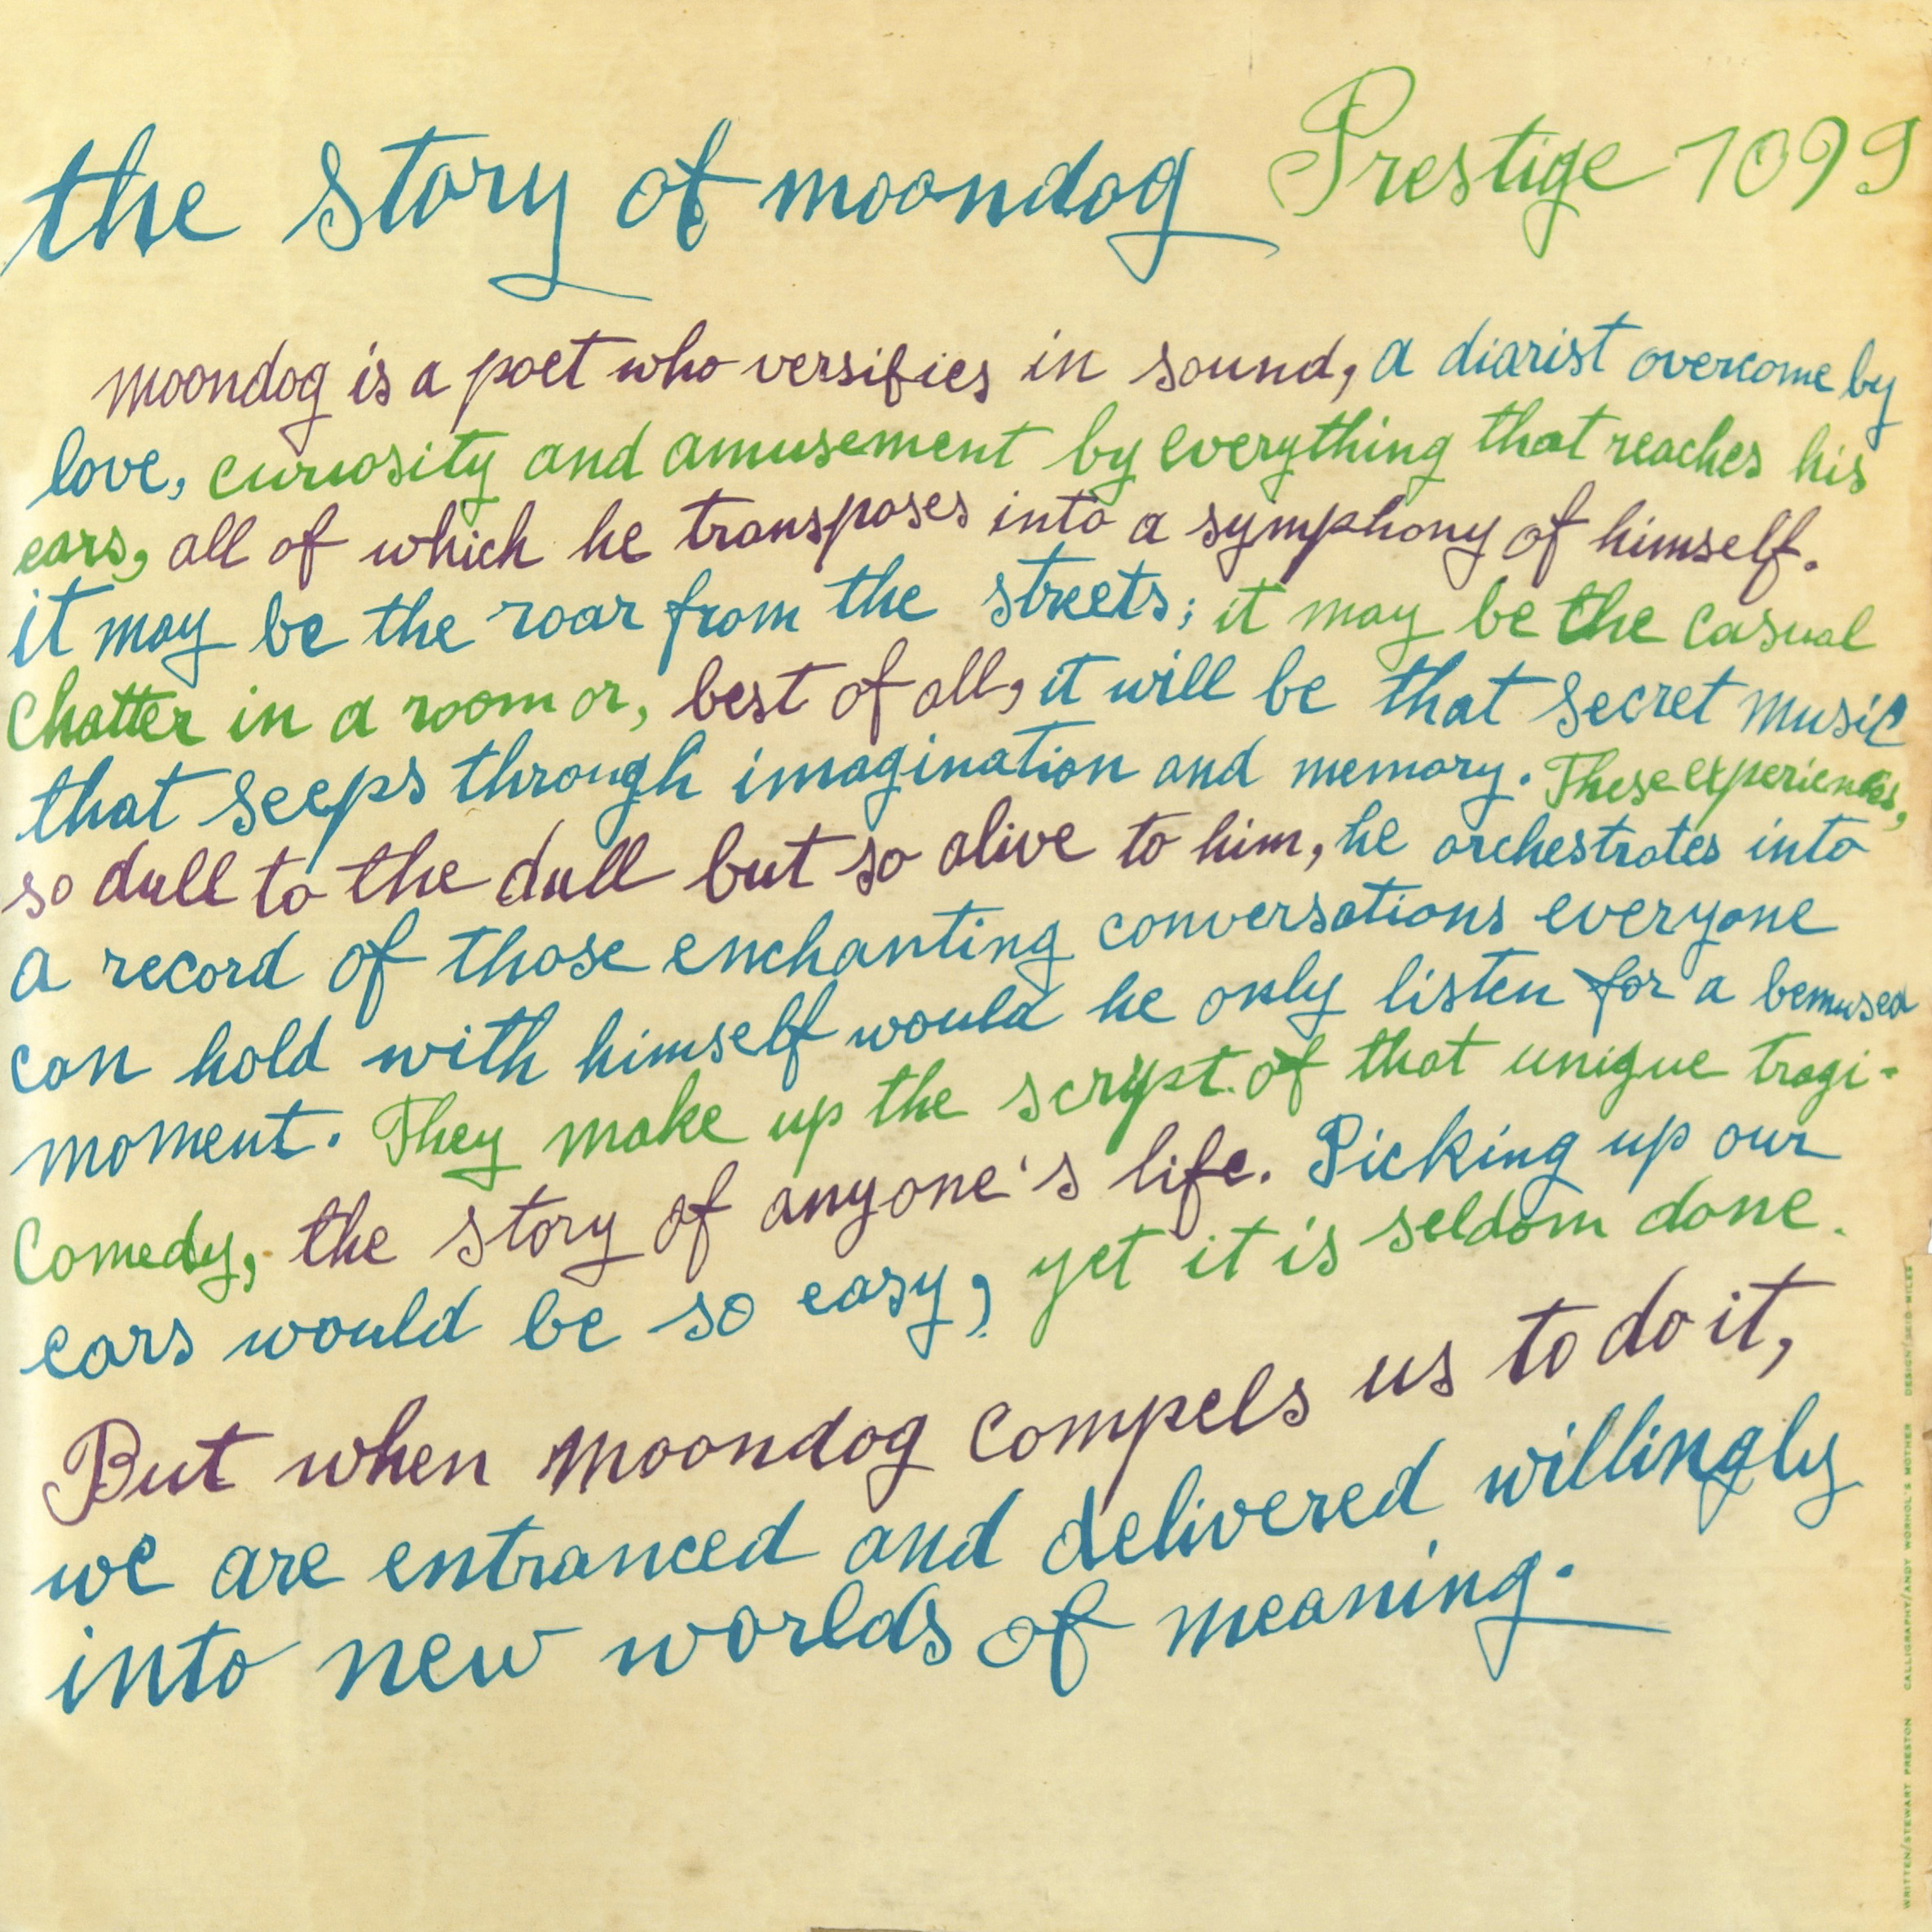 the story of moondog Prestige 1099
moondog is a poet who versifies in sound, a diarist overcome by
love, curiosity and amusement by everything that reaches his
ears, all of which he transposes into a symphony of himself.
it may be the roar from the streets; it may be the casual
Chatter in a room or, best of all, it will be that secret music
that seeps through imagination and memory. These experiences,
so dull to the dull but so alive to him, he orchestrates into
a record of those enchanting conversations everyone
can hold with himself would he only listen for a bemused
moment. They make up the scrypt. of that unique tragi-
Comedy, the story of anyone's life. Picking up our
ears would be so easy, yet it is seldom done.
But when moondog compels us to do it,
we are entranced and delivered willingly
into new worlds of meaning.
WRITTEN/STEWART PRESTON CALLIGRAPHY/ANDY WORHOL'S MOTHER DESIGN/REID MILES